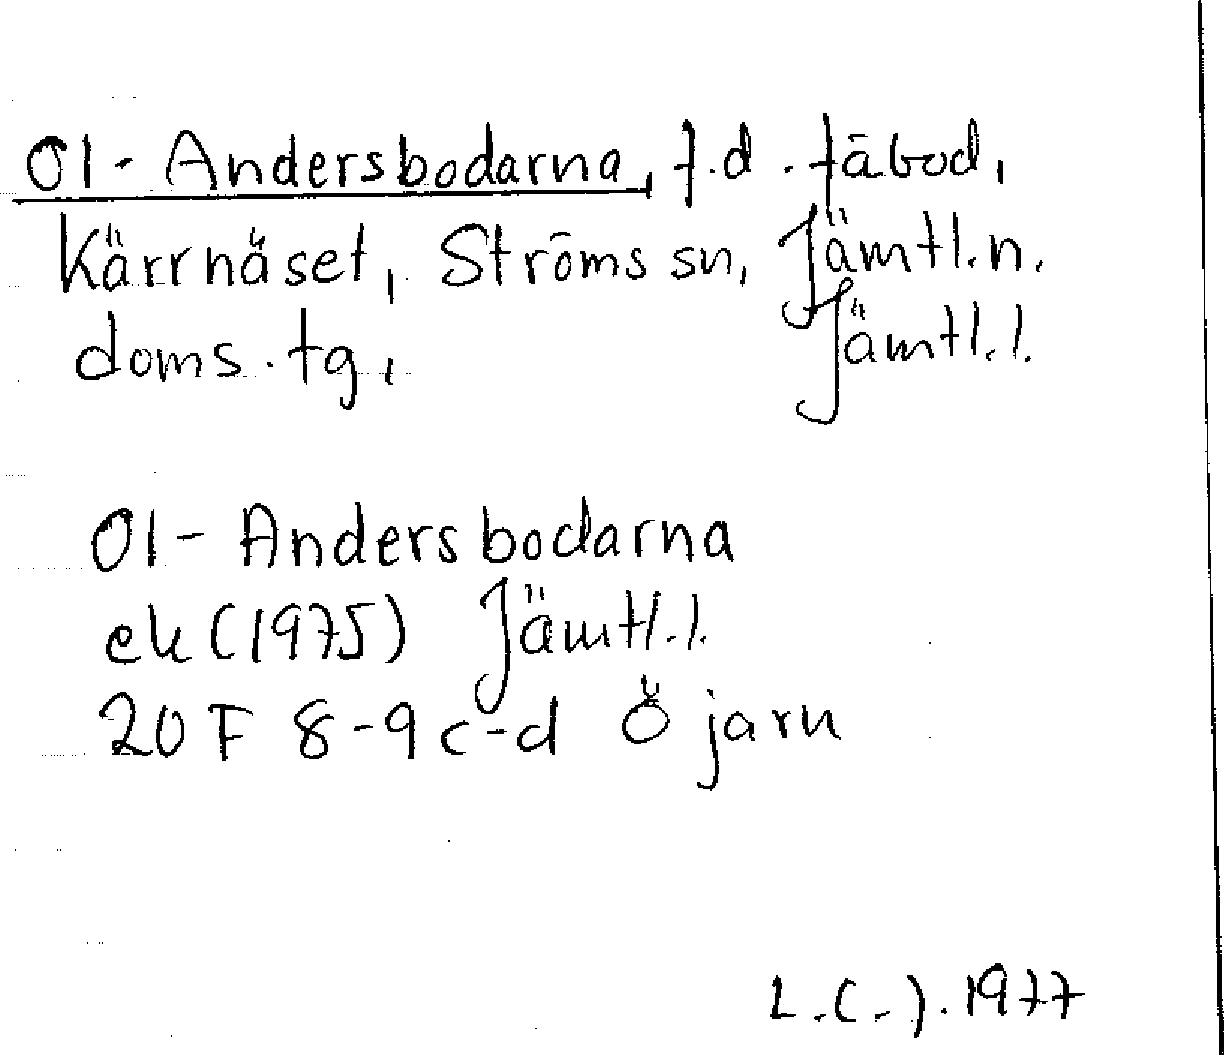 Ol-Andersbodarna, f.d. fäbod,
Kärrnäset, Ströms sn, Jämtl.n.
doms.tg, Jämtl.l.
Ol-Andersbodarna
ek (1975) Jämtl.l.
20 F 8-9 c-d Öjarn
L.C-). 1977